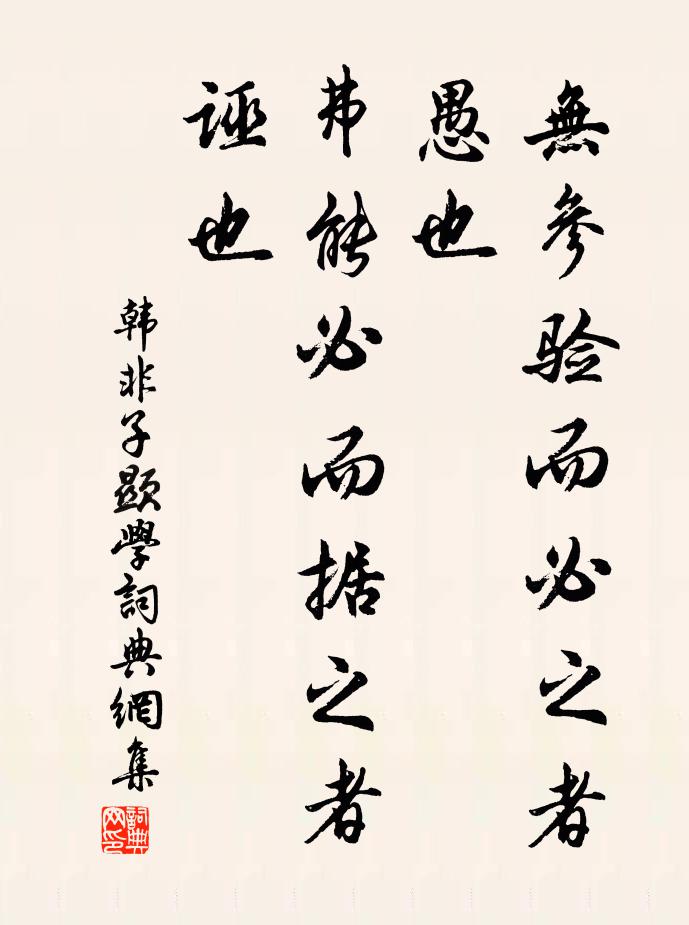 無參验而必之者
愚也
弗能必而据之者
誣也
韩非子顯學詞典網集
詞典網印